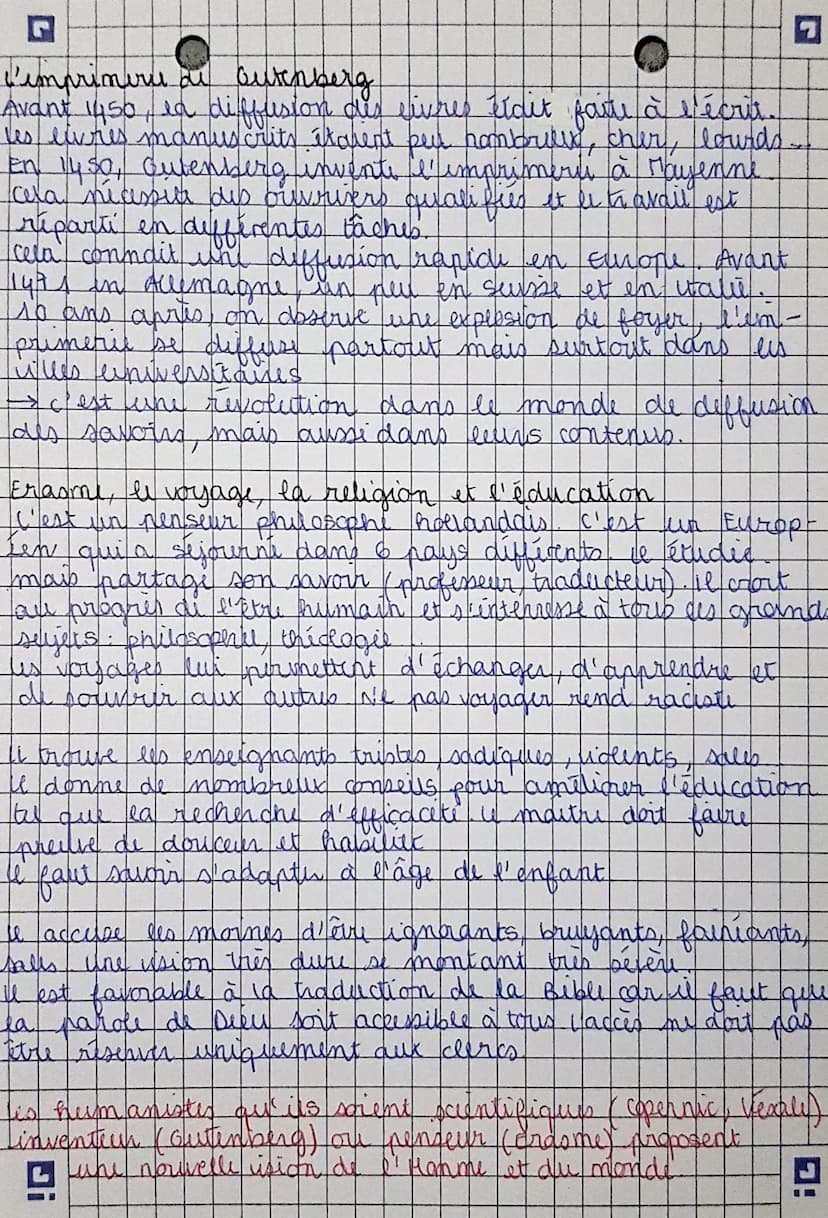 L'imprimerie de Gutenberg
Avant 1450, la diffusion des livres était faite à l'écrit.
Les livres manuscrits étaient peu nombreux, cher, lourds...
En 1450, Gutenberg invente l'imprimerie à Mayenne.
Cela nécessita des ouvriers qualifiés et le travail est
réparti en différentes tâches.
Cela connait une diffusion rapide en Europe. Avant
1471 en Allemagne, un peu en Suisse et en Italie.
10 ans après, on observe une expension de foyer, l'im-
primerie se diffuse partout mais surtout dans les
villes universitaires
→ c'est une révolution dans le monde de diffusion
des savoirs, mais aussi dans leurs contenus.
Erasme, le voyage, la religion et l'éducation
C'est un penseur philosophe hollandais. C'est un Europ-
éen qui a séjourné dans 6 pays différents. Il étudie
mais partage son savoir (professeur, traducteur). Il croit
au progrès de l'être humain et s'interresse à tous les grands
sujets : philosophie, théologie
Les voyages lui permettent d'échanger, d'apprendre et
de souvrir aux autres Ne pas voyager rend raciste
Il trouve les enseignants tristes, sadiques, violents, sales
Il donne de nombreux conseils pour améliorer l'éducation
tel que la recherche d'efficacité. Le maître doit faire
preuve de douceur et habilité
Il faut savoir s'adapter à l'âge de l'enfant
Il accuse les moines d'être ignorants, bruyants, fainéants,
sales. Une vision très dure se montant très sévère.
Il est favorable à la traduction de la Bible car il faut que
la parole de Dieu soit accessible à tous l'accès ne doit pas
être réserver uniquement aux clercs
Les humanistes qu'ils soient scientifiques (Copernic, Vésale)
inventeur (Gutenberg) ou penseur (Erasme) proposent
une nouvelle vision de l'Homme et du monde